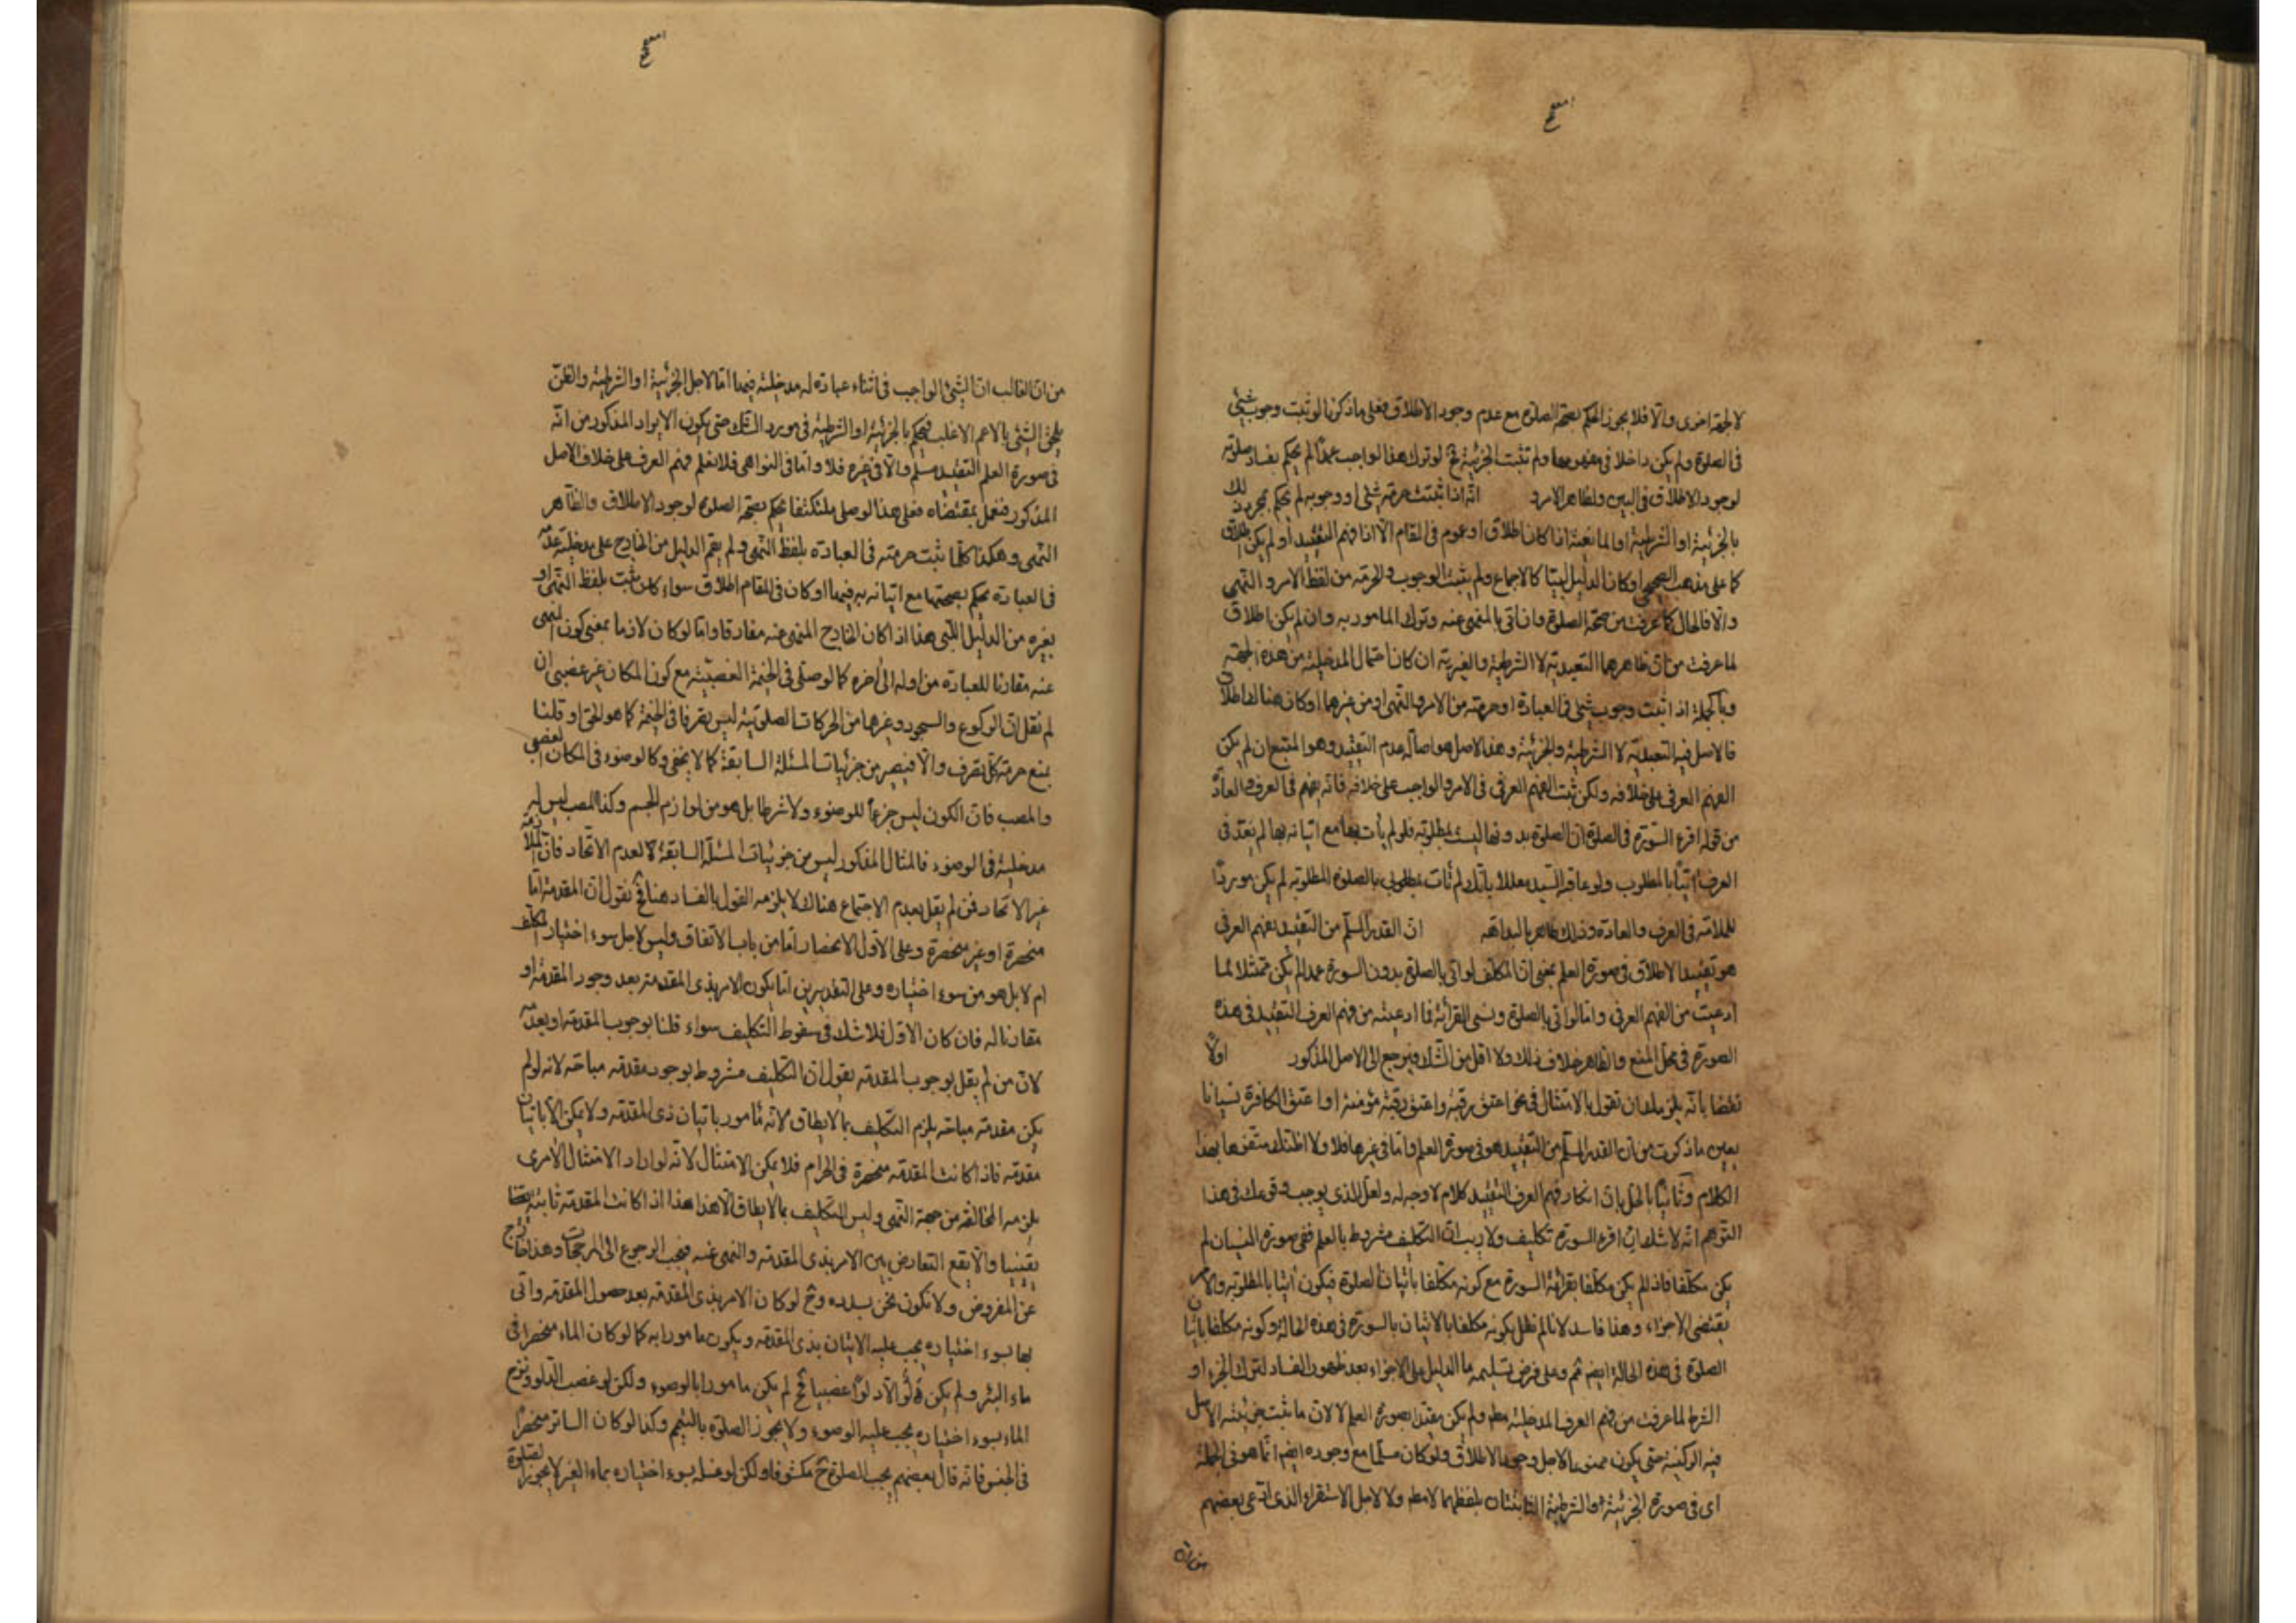 لا لجهة اخرى والا فلا يجوز الحكم بصحة الصلوة مع عدم وجود الاطلاق فعلى ما ذكرنا لو ثبت وجوب شئ
فى الصلوة ولم يكن داخلا فى مفهومها ولم تثبت الجزئية فح لو ترك هذا الواجب عمدا لم يحكم بفساد صلوته
لوجود الاطلاق فى البين ولظاهر الامر انه اذا ثبتت حرمة شئ او وجوبه لم يحكم بمجرد ذلك
بالجزئية او الشرطية او المانعية اذا كان اطلاق او عموم فى المقام الا اذا فهم التقييد او لم يكن اطلاق
كما على مذهب الصحيحى او كان الدليل لبيا كالاجماع ولم يثبت الوجوب والحرمة من لفظ الامر والنهى
والا فالحال كما عرفت من صحة الصلوة وان اتى بالمنهى عنه وترك المامور به وان لم يكن اطلاق
لما عرفت من ان ظاهرهما التعبدية لا الشرطية والغيرية ان كان احتمال المدخلية من هذه الجهة
وبالجملة اذا ثبت وجوب شئ فى العبادة او حرمته من الامر والنهى او من غيرهما وكان هناك اطلاق
فالاصل فيه التعبدية لا الشرطية والجزئية وهذا الاصل هو اصالة عدم التقييد وهو المتبع ان لم يكن
الفهم العرفى على خلافه ولكن ثبت الفهم العرفى فى الامر والواجب على خلافه فانه يفهم فى العرف والعادة
من قوله اقرء السورة فى الصلوة ان الصلوة بدونها ليست بمطلوبة فلو لم يأت بها مع اتيانه بها لم يعد فى
العرف آتيا بالمطلوب ولو عاقبه السيد معللا بانك لم تأت بمطلوبى بالصلوة المطلوبة لم يكن موردا
للملامة فى العرف والعادة وذلك ظاهر بالبداهة ان القدر المسلم من التقييد بفهم العرفى
هو تقييد الاطلاق فى صورة العلم بمعنى ان المكلف لو اتى بالصلوة بدون السورة عمدا لم يكن ممتثلا لما
ادعيت من الفهم العرفى واما لو اتى بالصلوة ونسى القرائة فما ادعيته من فهم العرف التقييد فى هذه
الصورة فى محل المنع والظاهر خلاف ذلك ولا اقل من الشك فيرجع الى الاصل المذكور اولا
نقضا بانه يلزم ان تقول بالامتثال فى نحو اعتق رقبة واعتق رقبة مؤمنة او اعتق الكافرة نسيانا
بعين ما ذكرت من ان القدر المسلم من التقييد هو فى صورة العلم واما فى غيرها فلا ولا اظنك متفوها بهذا
الكلام وثانيا بالحل بان انكار فهم العرف التقييد كلام لا وجه له ولعل الذى يوجب وقوعك فى هذا
التوهم انه لا شك ان اقرء السورة تكليف ولا ريب ان التكليف مشروط بالعلم ففى صورة النسيان لم
يكن مكلفا فاذا لم يكن مكلفا بقرائة السورة مع كونه مكلفا باتيان الصلوة فيكون آتيا بالمطلوبة والامر
يقتضى الاجزاء وهذا فاسد لانا لم نقل بكونه مكلفا بالاتيان بالسورة فى هذه الحالة وكونه مكلفا باتيان
الصلوة فى هذه الحالة ايضم ثم وعلى فرض تسليمه ما الدليل على الاجزاء بعد ظهور الفساد لترك الجزء او
الشرط لما عرفت من فهم العرف المدخلية مطم ولم يكن مقيدا بصورة العلم لا لان ما ثبت جزئيته الاصل
فيه الركنية حتى يكون ممنوعا لاجل وجود الاطلاق ولو كان مسلما مع وجوده ايضم انما هو فى الجملة
اى فى صورة الجزئية او الشرطية الثابتتان بلفظهما لا مطم ولا لاجل الاستقراء الذى ادعى بعضهم
من ان
من ان الغالب ان الشئ الواجب فى اثناء عبادة له مدخلية فيها اما لاجل الجزئية او الشرطية والظن
يلحق الشئ بالاعم الاغلب فيحكم بالجزئية او الشرطية فى مورد الشك حتى يكون الايراد المذكور من انه
فى صورة العلم التقييد مسلم والا فى غيره فلا واما فى النواهى فلا نعلم فهم العرف على خلاف الاصل
المذكور فنعمل بمقتضاه فعلى هذا لو صلى متكتفا يحكم بصحة الصلوة لوجود الاطلاق والظاهر
النهى وهكذا كلما ثبت حرمته فى العبادة بلفظ النهى ولم يقم الدليل من الخارج على مدخلية عدمه
فى العبادة يحكم بصحتها مع اتيانه به فيها او كان فى المقام اطلاق سواء كان ثبت بلفظ النهى او
بغيره من الدليل اللبى هذا اذا كان الخارج المنهى عنه مفارقا واما لو كان لازما بمعنى كون المنهى
عنه مقارنا للعبادة من اوله الى آخره كما لو صلى فى الخيمة الغصبية مع كون المكان غير غصبى ان
لم نقل ان الركوع والسجود وغيرها من الحركات الصلوتية ليس بتصرف فى الخيمة كما هو الحق او قلنا
بمنع حرمة كل تصرف والا فيصير من جزئيات المسئلة السابقة كما لا يخفى وكالوضوء فى المكان الغصبى
والمصب فان الكون ليس جزءا للوضوء ولا شرطا بل هو من لوازم الجسم وكذا المصب ليس له
مدخلية فى الوضوء فالمثال المذكور ليس من جزئيات المسئلة السابقة لا لعدم الاتحاد فان الملازمة
غير الاتحاد فمن لم يقل بعدم الاجتماع هناك لا يلزمه القول بالفساد هنا فح نقول ان المقدمة اما
منحصرة او غير منحصرة وعلى الاول الانحصار اما من باب الاتفاق وليس لاجل سوء اختيار المكلف
ام لا بل هو من سوء اختياره وعلى التقديرين اما يكون الامر بذى المقدمة بعد وجود المقدمة او
مقارنا له فان كان الاول فلا شك فى سقوط التكليف سواء قلنا بوجوب المقدمة او بعدمه
لان من لم يقل بوجوب المقدمة يقول ان التكليف مشروط بوجود مقدمة مباحة لانه لو لم
يكن مقدمة مباحة يلزم التكليف بما لا يطاق لانه مأمور باتيان ذى المقدمة ولا يمكن الا باتيان
مقدمة فاذا كانت المقدمة منحصرة فى الحرام فلا يمكن الامتثال لانه لو اراد الامتثال لامرى
يلزمه المخالفة من جهة النهى وليس التكليف بما لا يطاق الا هذا هذا اذا كانت المقدمة ثابتة
يقينيا والا يقع التعارض بين الامر بذى المقدمة والنهى عنه فيجب الرجوع الى المرجحات وهذا خارج
عن المفروض ولا نكون نحن بسدده وح لو كان الامر بذى المقدمة بعد حصول المقدمة واتى
بها بسوء اختياره يجب عليه الاتيان بذى المقدمة ويكون مامورا به كما لو كان الماء منحصرا فى
ماء البئر ولم يكن دلو الا دلوا غصبيا فح لم يكن مامورا بالوضوء ولكن لو غصب الدلو ونزح
الماء بسوء اختياره يجب عليه الوضوء ولا يجوز الصلوة بالتيمم وكذا لو كان الساتر منحصرا
فى النجس فانه قال بعضهم يجب الصلوة ح مكشوفا ولكن لو غسله بسوء اختياره بماء الغير لا يجوز الصلوة